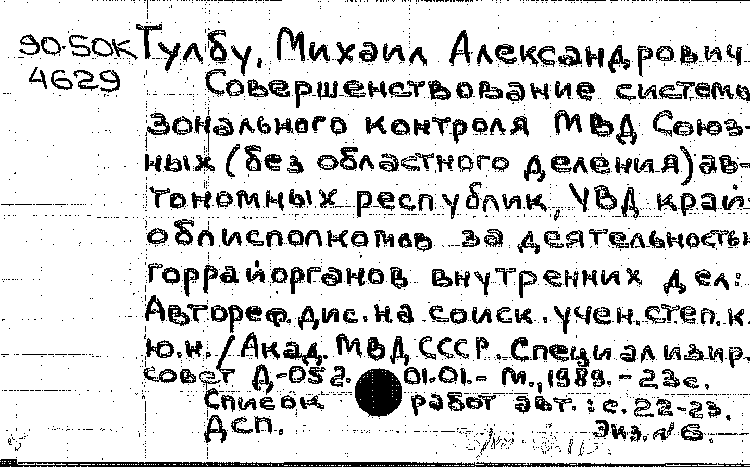 90-50К Тулбу, Михаил Александрович
4629
Совершенствование системы
зонального контроля МВД Союз-
ных (без областного деления) ав-
тономных республик, УВД край-
облисполкомов за деятельностью
горрайорганов внутренних дел:
Автореф. дис. на соиск. учен. степ. к.
ю. н. / Акад. МВД СССР. Специализир.
совет Д-052. 01.01. - М., 1989. - 23с.
Список работ авт.: с. 22-23.
ДСП. Экз. № 6.